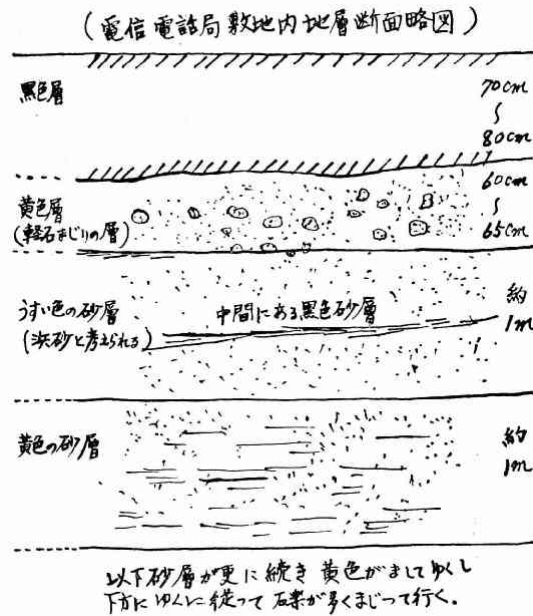 (電信電話局敷地内地層断面略図)
黒色層
70cm
〜
80cm
黄色層
(軽石まじりの層)
60cm
〜
65cm
うすい色の砂層
(浜砂と考えられる)
中間にある黒色砂層
約
1m
黄色の砂層
約
1m
以下砂層が更に続き 黄色がましてゆくし
下方にゆくに従って 石礫が多くまじって行く。